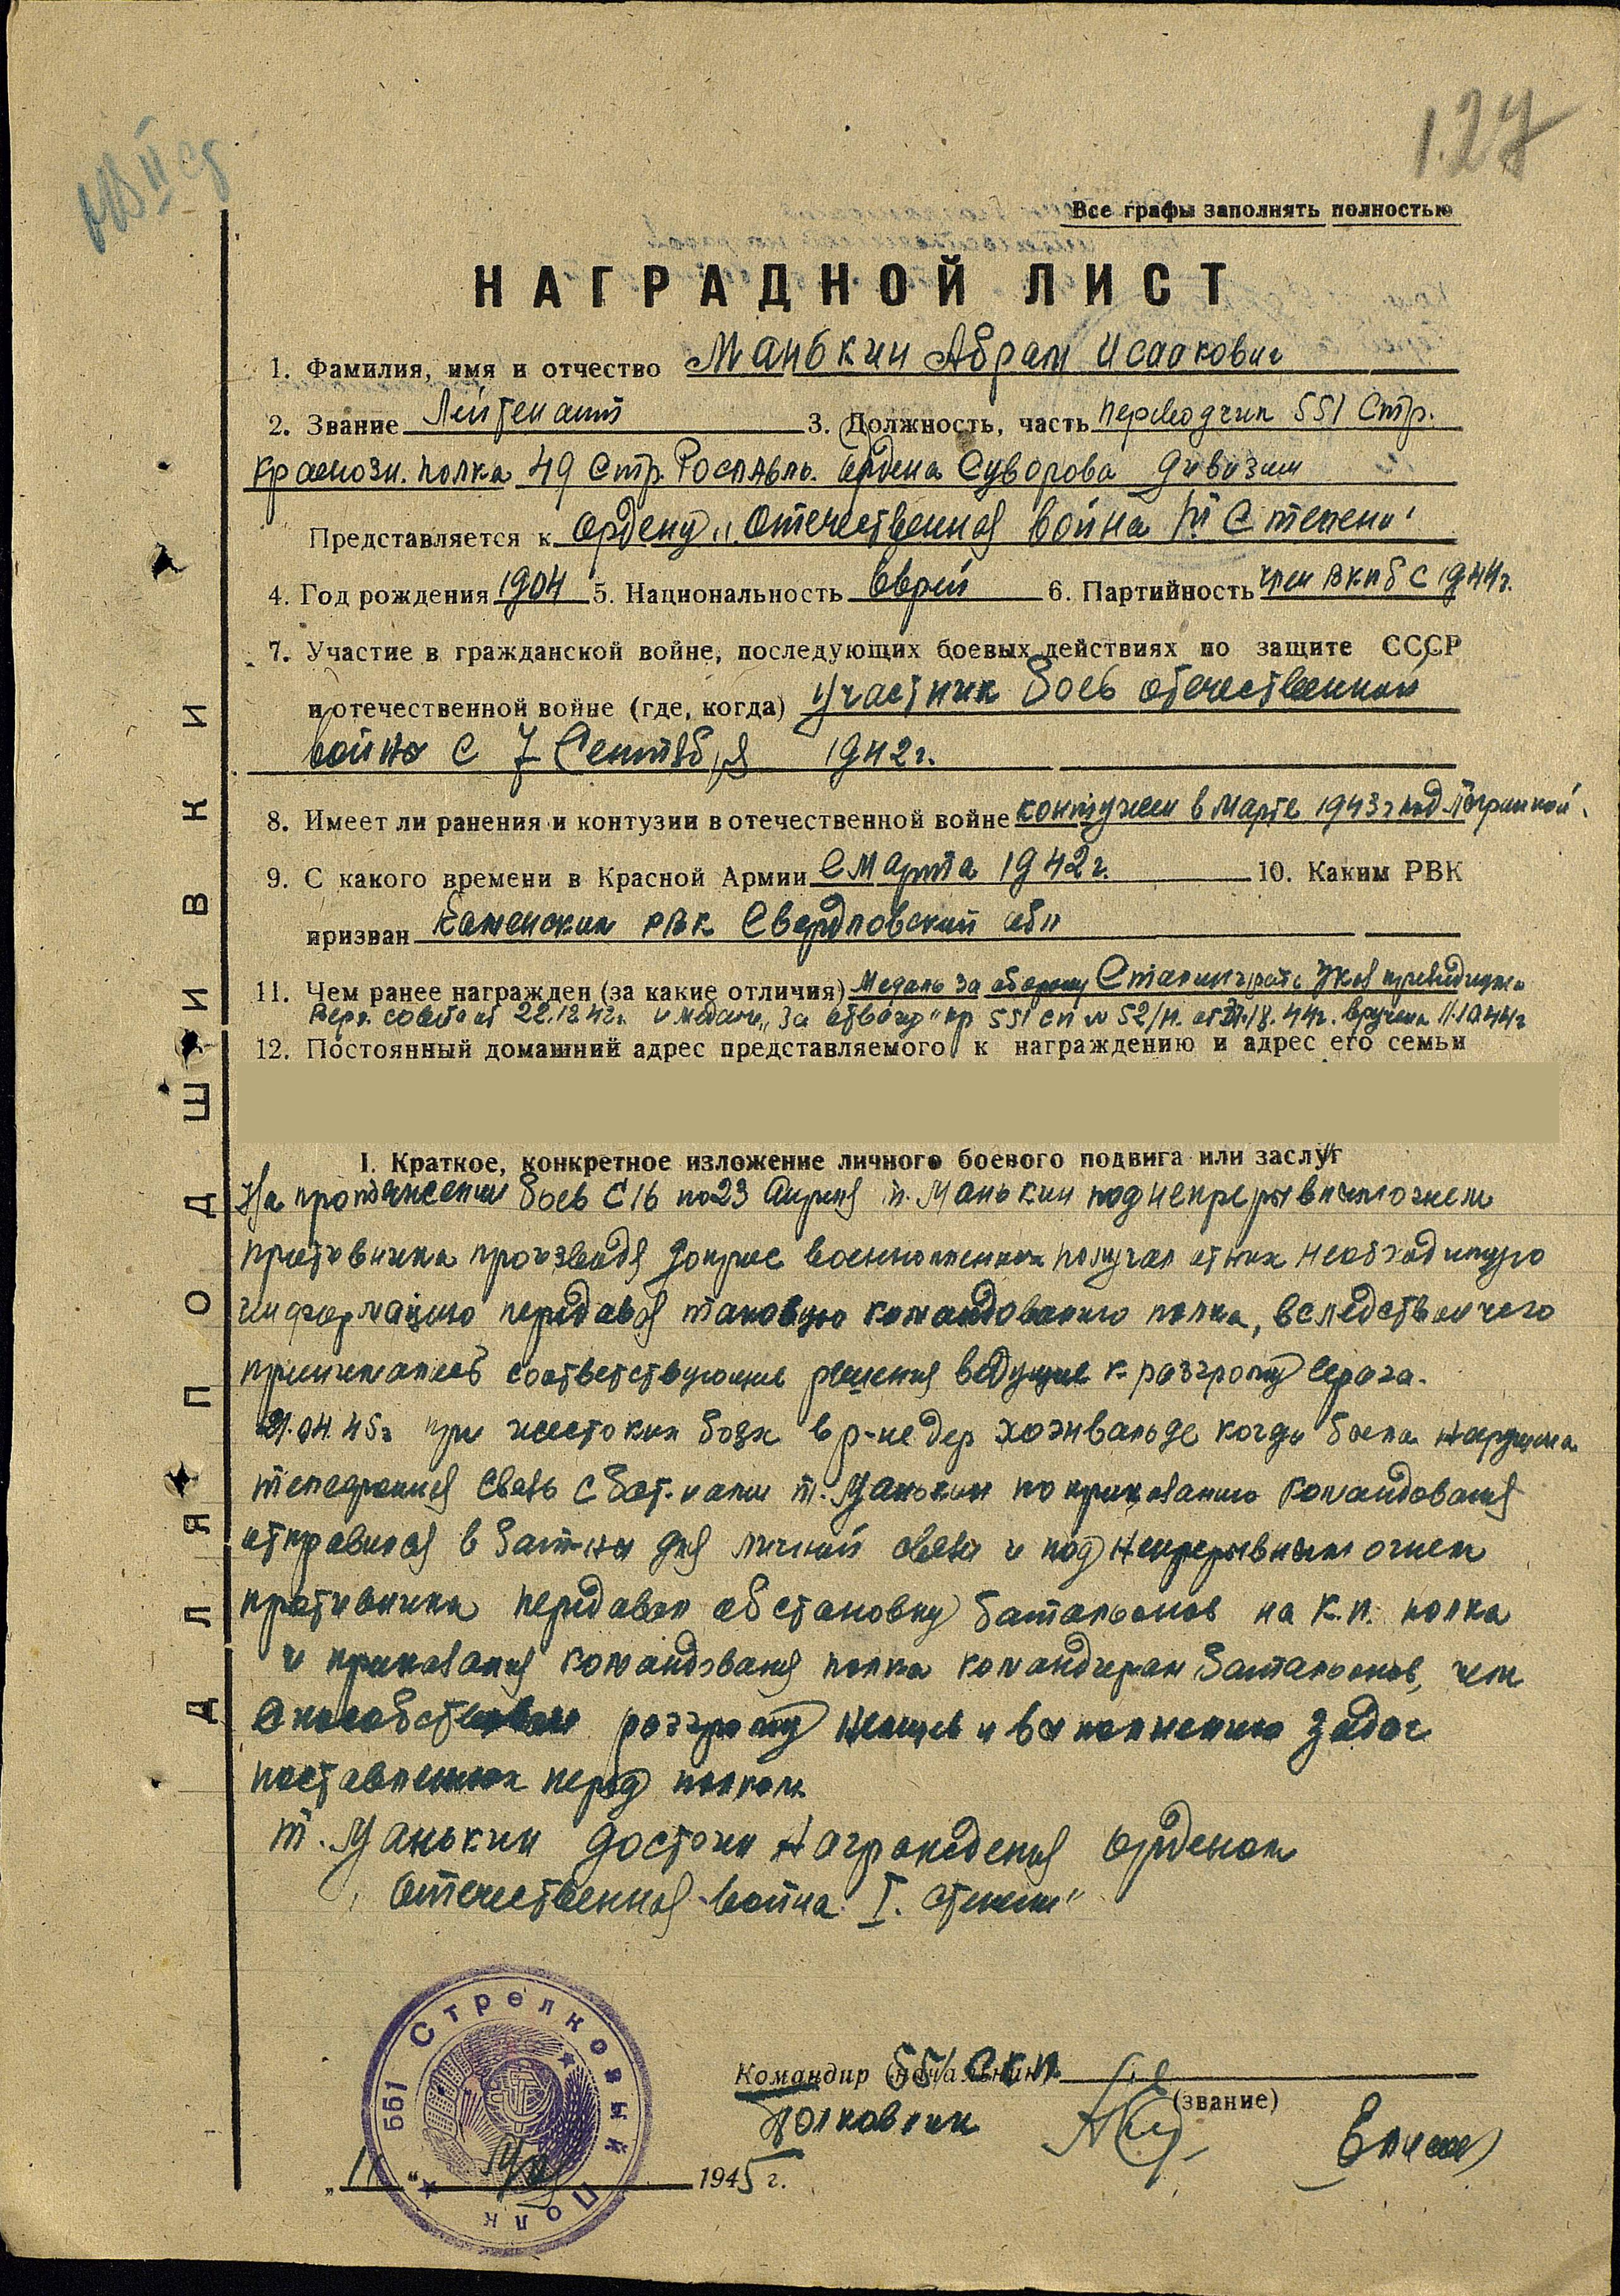 127
Все графы заполнять полностью
НАГРАДНОЙ ЛИСТ
1. Фамилия, имя и отчество Манькин Абрам Исаакович
2. Звание Лейтенант 3. Должность, часть переводчик 551 Стр.
краснозн. полка 49 Стр. Рославль. ордена Суворова дивизии
Представляется к ордену „Отечественная война II Степени"
4. Год рождения 1904 5. Национальность Еврей 6. Партийность член ВКПб с 1944г.
7. Участие в гражданской войне, последующих боевых действиях по защите СССР
и отечественной войне (где, когда) участник боев отечественной
войны с 7 Сентября 1942г.
8. Имеет ли ранения и контузии в отечественной войне контужен в Марте 1943г под
9. С какого времени в Красной Армии С Марта 1942г. 10. Каким РВК
призван Каменским РВК Свердловский обл
11. Чем ранее награжден (за какие отличия) Медаль за оборону Сталинграда Указ президиума
Верх. совета от 22.12.42г. и медаль „За отвагу" пр 551 сп № 52/н. от 8.44г. вручена 11.10.44г
12. Постоянный домашний адрес представляемого к награждению и адрес его семьи
I. Краткое, конкретное изложение личного боевого подвига или заслуг
На протяжении боев С 16 по 23 Апреля т. Манькин под непрерывным огнем
противника производя допрос военнопленных получал от них необходимую
информацию передавая таковую командованию полка, вследствии чего
принимались соответствующие решения ведущие к разгрому врага.
21.04.45г при жестоких боях в р-не дер Хоэнвальде когда была нарушена
телефонная связь с бат-нами т. Манькин по приказанию командования
отправился в бат-ны для личной связи и под непрерывным огнем
противника передавал обстановку батальонов на К.П. полка
и приказания командования полка командирам батальонов, чем
способствовал разгрому немцев и выполнению задач
поставленных перед полком
т. Манькин достоин награждения орденом
„Отечественная война I. степени"
Командир (начальник) 551 скп
(звание)
Полковник
„11" 1945 г.
551 Стрелковый Полк
ДЛЯ ПОДШИВКИ